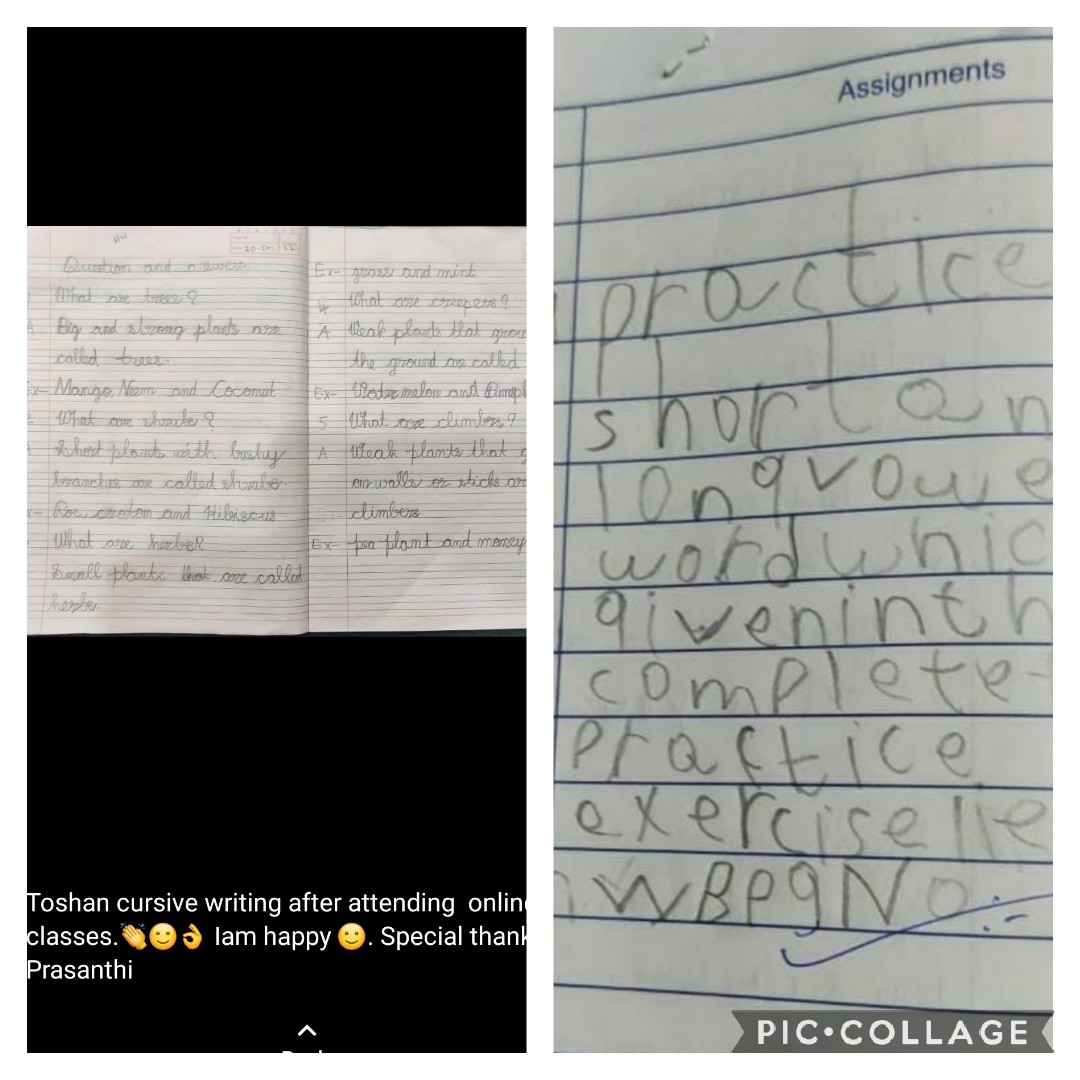 Question and answer
What are trees?
A Big and strong plants are
called trees.
Ex- Mango, Neem and Coconut
What are shrubs?
Short plants with bushy
branches are called shrubs.
and Hibiscus
What are herbs?
Small plants that are called
herbs.
Ex- grass and mint
4 What are creepers?
A Weak plants that
the ground are called
Ex- Watermelon and
5 What are climbers?
A Weak plants that
on walls or sticks
climbers
Ex- pea plant and money
Toshan cursive writing after attending
classes.👏🙂👌 Iam happy 🙂. Special
Prasanthi
Assignments
practice
short an
long vowe
word whic
given in th
complete-
practice
exercise
WBPgNo:-
PIC•COLLAGE